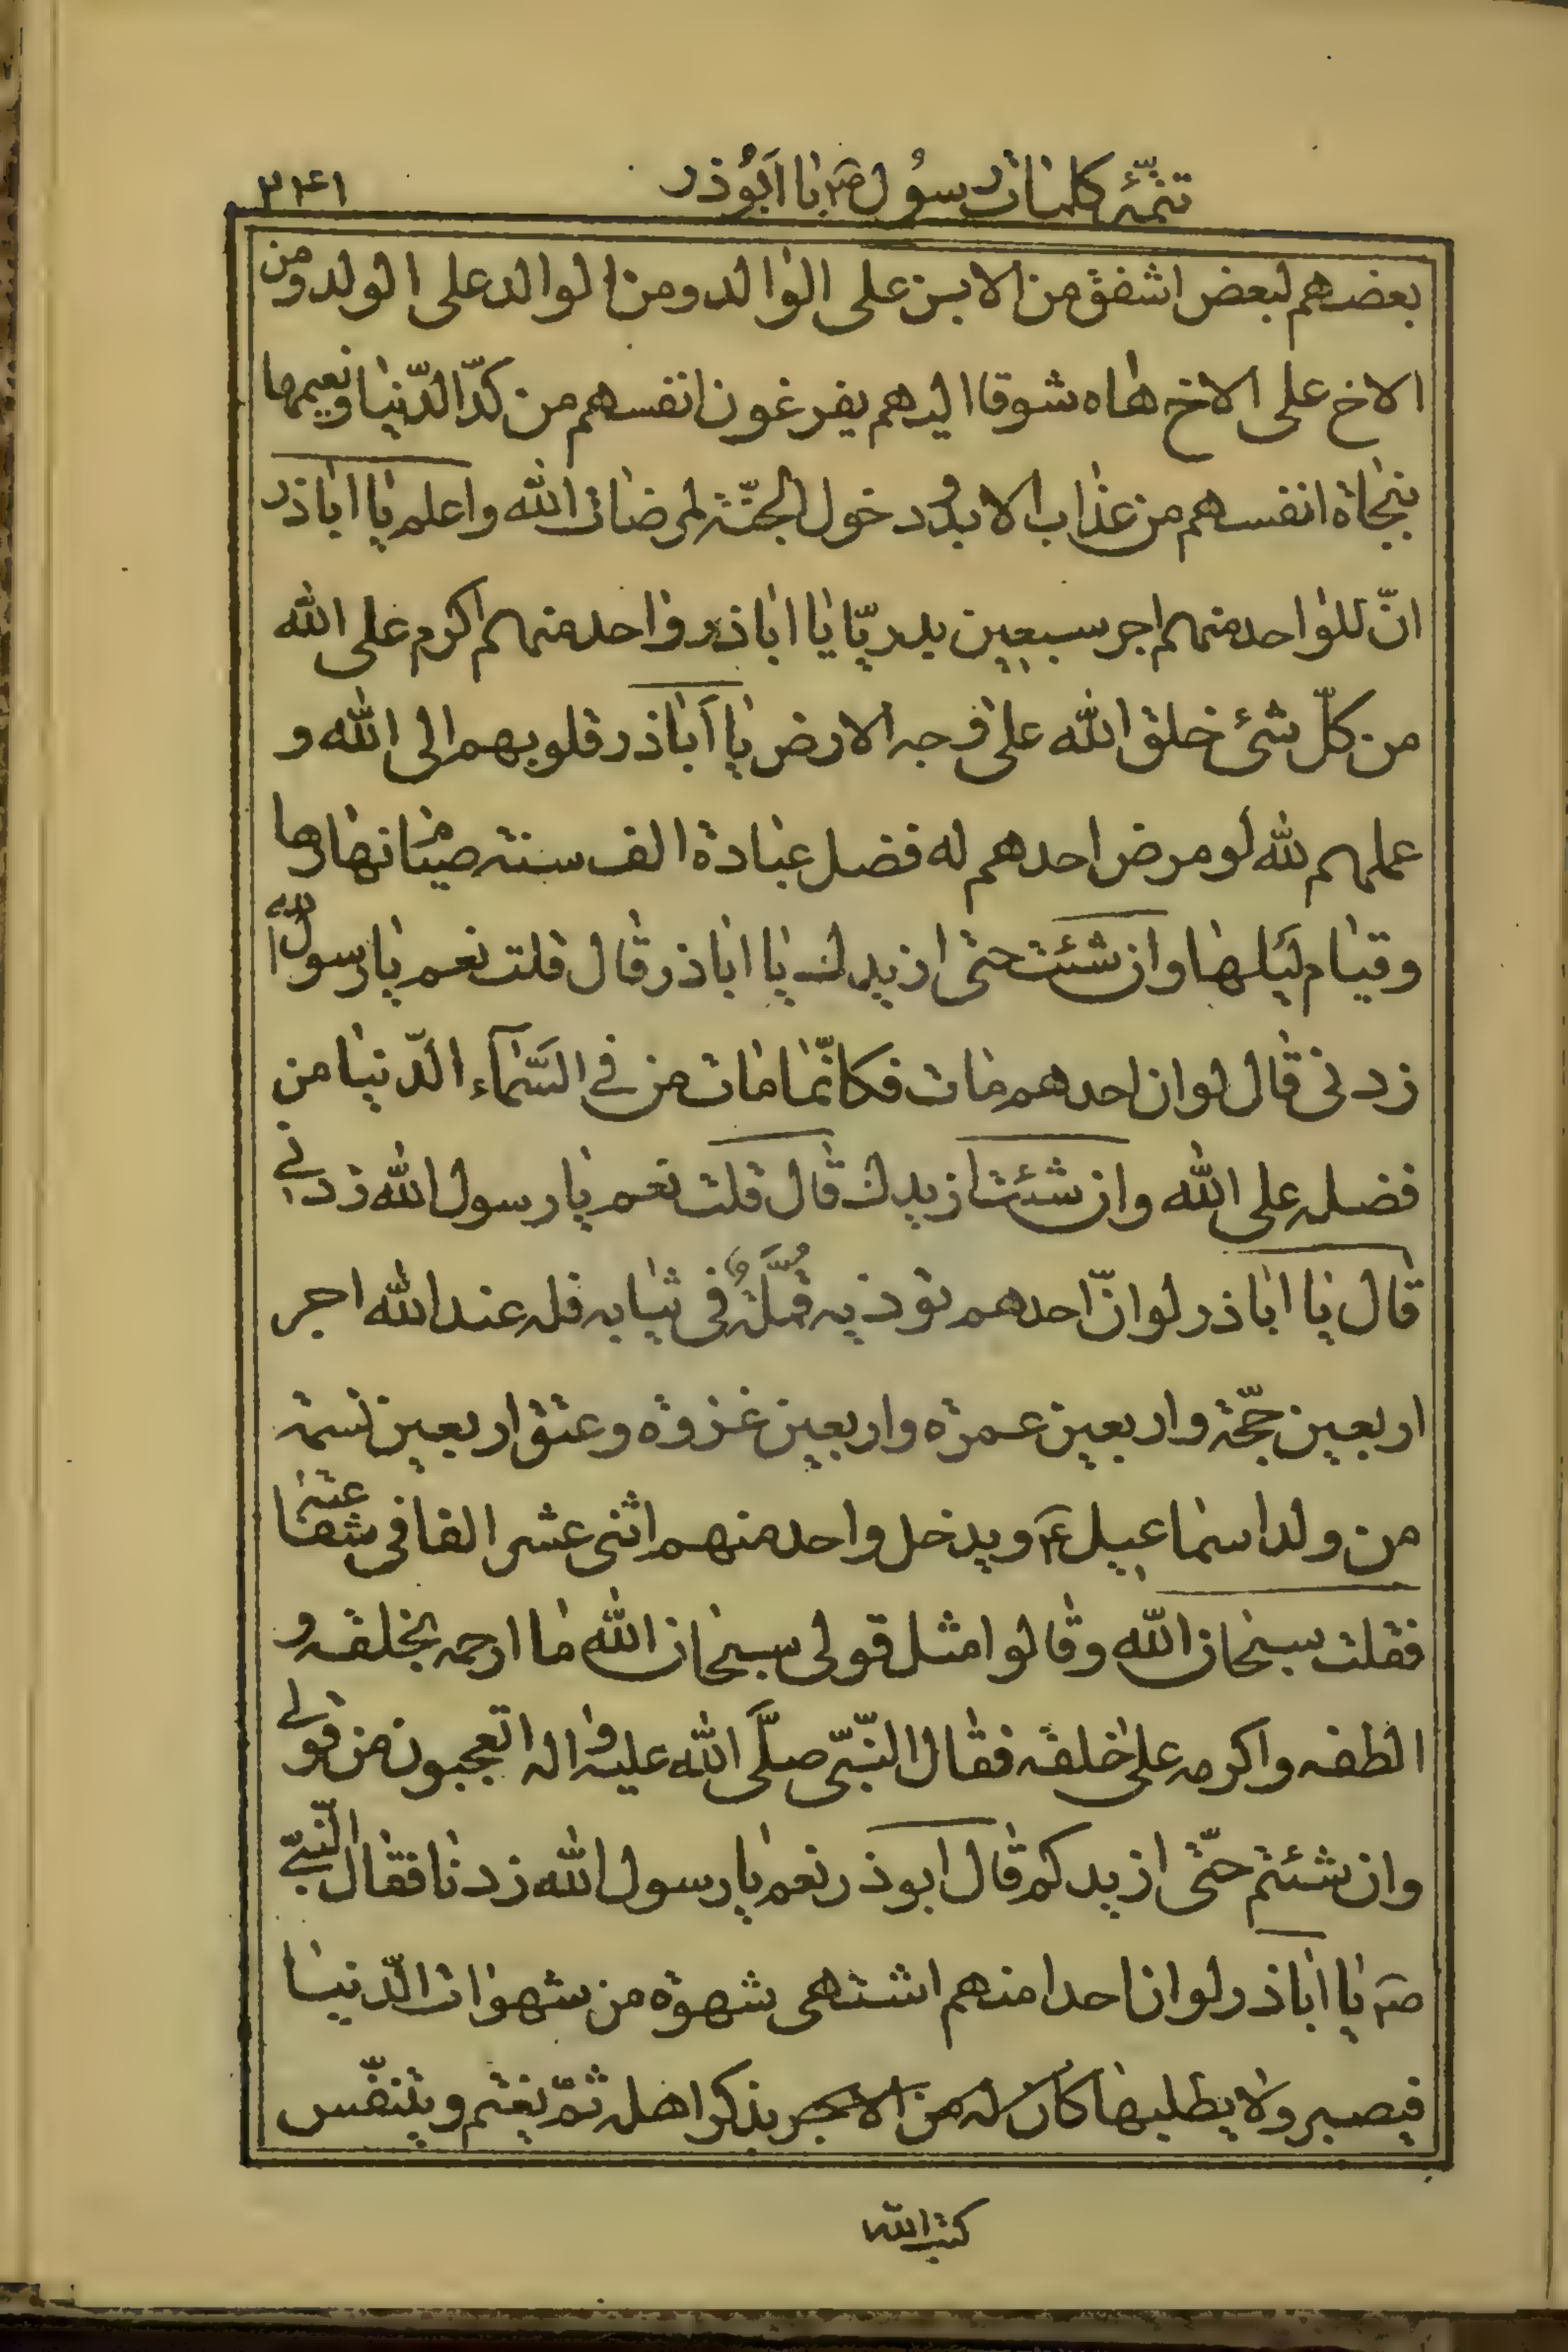 تتمّهٔ کلمات رسُول ص؟ با اَبُوذر
بعضهم لبعض اشفق من الابن علی الوالد ومن الوالد علی الولد ومن
الاخ علی الاخ هاه شوقا الیهم یفرغون انفسهم من کدّ الدّنیا ونعیمها
بنجاة انفسهم من عذاب الابد و دخول الجنّة لمرضات الله واعلم یا اباذر
انّ للواحد منهم اجر سبعین بدریّا یا اباذر واحد منهم اکرم علی الله
من کلّ شئ خلق الله علی وجه الارض یا اَباذر قلوبهم الی الله و
عملهم لله لو مرض احدهم له فضل عبادة الف سنة صیام نهارها
وقیام لیلها وان شئت حتی ازیدك یا اباذر قال قلت نعم یا رسول الله
زدنی قال لو ان احدهم مات فکانّما مات من فی السّماء الدّنیا من
فضله علی الله وان شئت ازیدك قال قلت نعم یا رسول الله زدنی
قال یا اباذر لو انّ احدهم تؤذیه قُمَّلَةٌ فی ثیابه فله عند الله اجر
اربعین حجّة واربعین عمرة واربعین غزوة وعتق اربعین نسمة
من ولد اسماعیل ع ویدخل واحد منهم اثنی عشر الفا فی شفاعته
فقلت سبحان الله وقالوا مثل قولی سبحان الله ما ارحمه بخلقه و
الطفه واکرمه علی خلقه فقال النّبیّ صلَّی الله علیه واله اتعجبون من قولی
وان شئتم حتّی ازیدکم قال ابوذر نعم یا رسول الله زدنا فقال النّبیّ
ص یا اباذر لو ان احدا منهم اشتهی شهوة من شهوات الدّنیا
فیصبر ولا یطلبها کان له من الاجر بذکر اهله ثمّ یغتم ویتنفّس
کتب الله